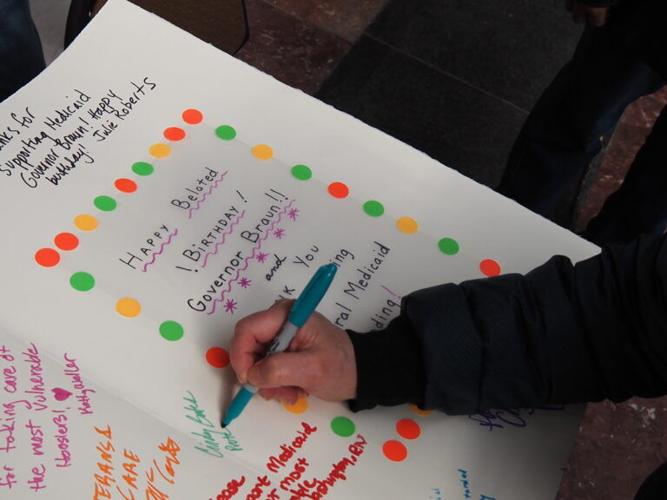 nks for
Supporting Medicaid
Governor Braun! Happy
birthday! Julie Roberts
Happy Belated
! Birthday!
Governor Braun!!
and
nk You
ing
ral Medicaid
ding!
for taking care of
the most vulnerable
Hoosiers!
Kathy
Cindy
ERANS
CARE
ease
port Medicaid
r most